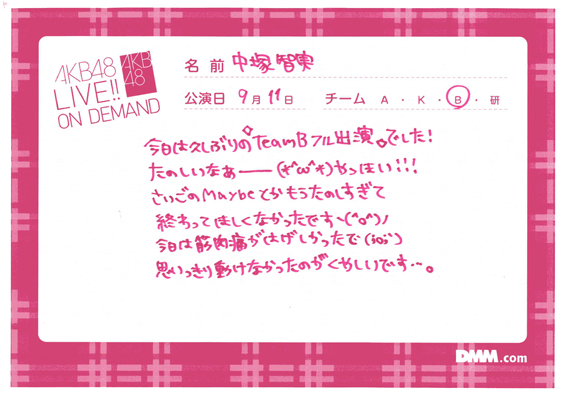 AKB48
LIVE!!
ON DEMAND
AKB
48
名前 中塚智実
公演日 9月11日 チーム A・K・B・研
今日は久しぶりの TeamBフル出演 でした!
たのしいなぁー――(*^ω^*)やっほい!!!
さいごのMaybeとかもうたのしすぎて
終わってほしくなかったですヽ(^o^)ノ
今日は筋肉痛がはげしかったで(;o;)
思いっきり動けなかったのがくやしいです…。
DMM.com